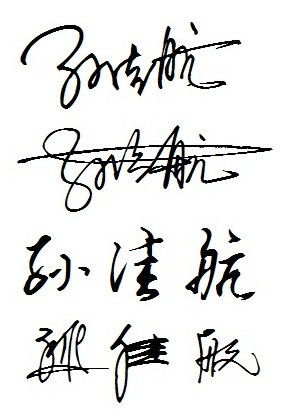 孙佳航
孙佳航
孙佳航
孙佳航